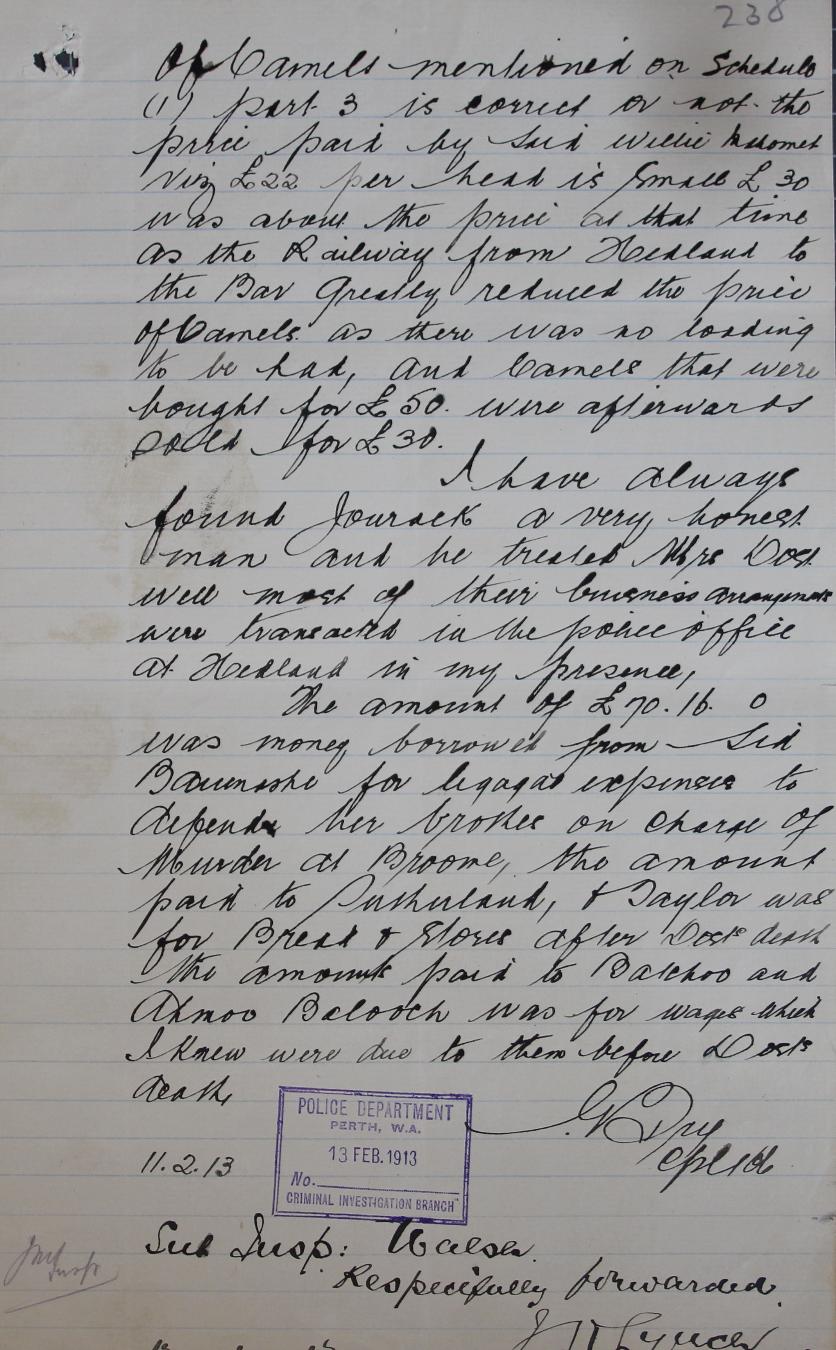 238
Of Camels mentioned on Schedule
(1) part 3 is correct or not the
price paid by Said Willie Mahomet
Viz £22 per head is Small £30
was about the price at that time
as the Railway from Hedland to
the Bar Greatly reduced the price
of Camels as there was no loading
to be had, and Camels that were
bought for £50. were afterwards
sold for £30.
I have always
found Jourack a very honest
man and he treated Mrs Dost
well most of their business arrangements
were transacted in the police office
at Hedland in my presence,
The amount of £70.16.0
was money borrowed from Sid
for legagal expenses to
defend her brother on Charge of
Murder at Broome, the amount
paid to Sutherland, & Taylor was
for Bread & Stores after Dosts death
the amounts paid to Balchoo and
Ahmoo Balooch was for wages which
I knew were due to them before Dosts
death,
POLICE DEPARTMENT
PERTH, W.A.
13 FEB. 1913
No.
CRIMINAL INVESTIGATION BRANCH
11.2.13
Sub Insp: Walsh.
Respectfully forwarded.